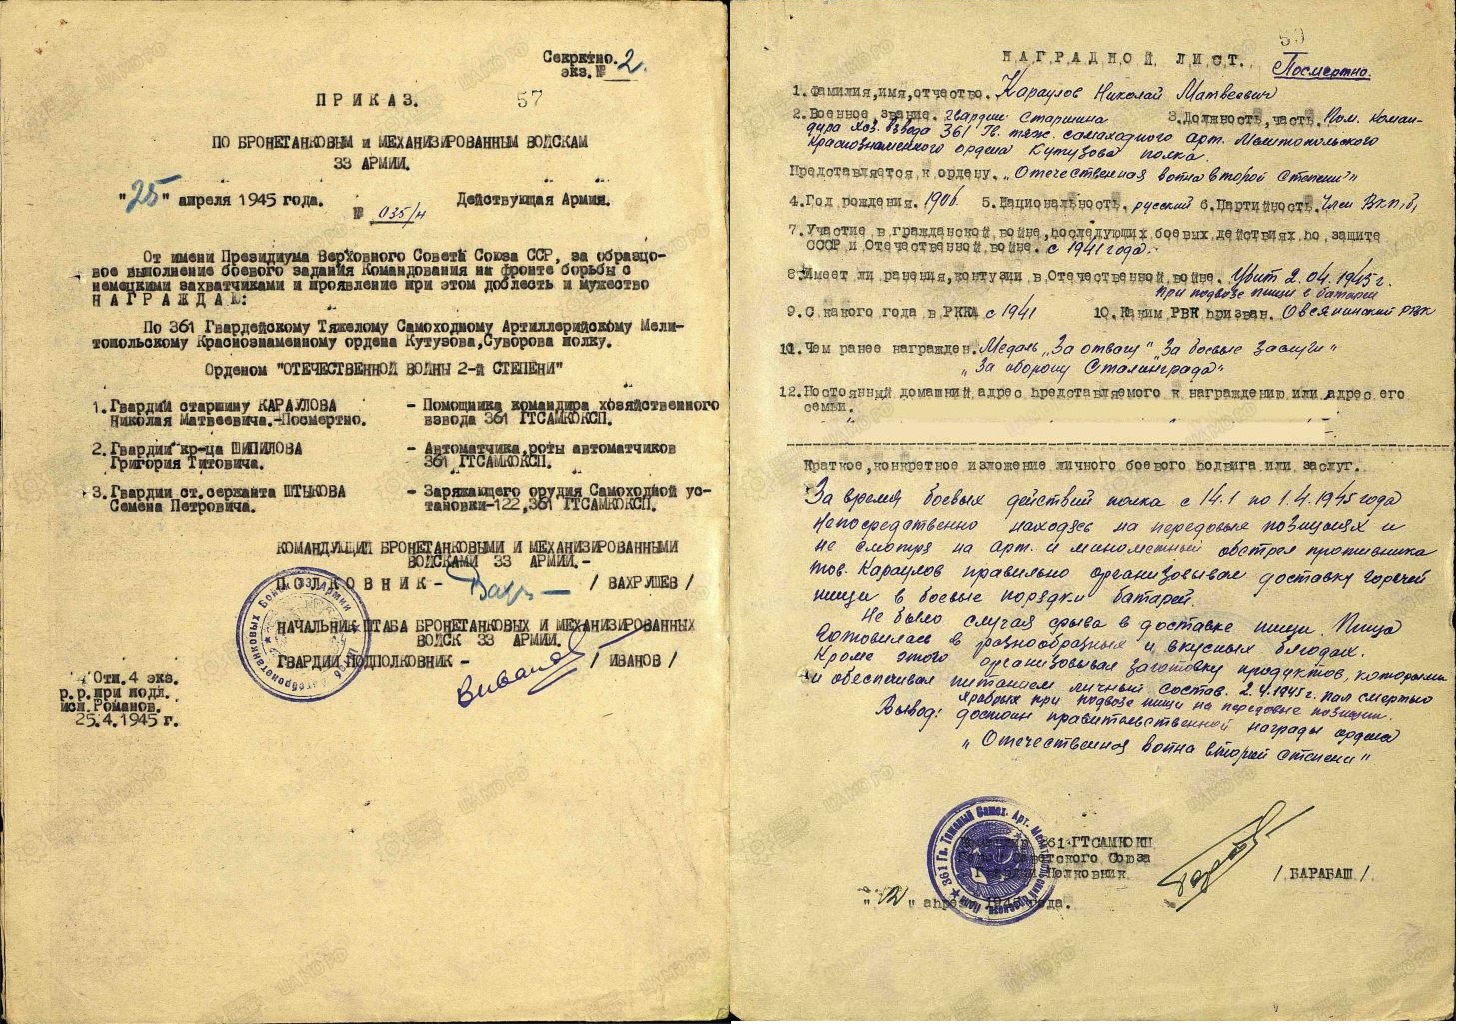 Секретно.
экз.№ 2.
57
ПРИКАЗ.
ПО БРОНЕТАНКОВЫМ и МЕХАНИЗИРОВАННЫМ ВОЙСКАМ
33 АРМИИ.
"25" апреля 1945 года.
№ 035/н
Действующая Армия.
От имени Президиума Верховного Совета Союза ССР, за образцо-
вое выполнение боевого задания Командования на фронте борьбы с
немецкими захватчиками и проявление при этом доблесть и мужество
НАГРАЖДАЮ:
По 361 Гвардейскому Тяжелому Самоходному Артиллерийскому Мели-
топольскому Краснознаменному ордена Кутузова,Суворова полку.
Орденом "ОТЕЧЕСТВЕННОЙ ВОЙНЫ 2-й СТЕПЕНИ"
1. Гвардии старшину КАРАУЛОВА - Помощника командира хозяйственного
Николая Матвеевича.-Посмертно. взвода 361 ГТСАМКОКСП.
2. Гвардии кр-ца ШИПИЛОВА - Автоматчика,роты автоматчиков
Григория Титовича. 361 ГТСАМКОКСП.
3. Гвардии ст.сержанта ШТЫКОВА - Заряжающего орудия Самоходной ус-
Семена Петровича. тановки-122,361 ГТСАМКОКСП.
КОМАНДУЮЩИЙ БРОНЕТАНКОВЫМИ И МЕХАНИЗИРОВАННЫМИ
ВОЙСКАМИ 33 АРМИИ.-
ПОЛКОВНИК - / ВАХРУШЕВ /
НАЧАЛЬНИК ШТАБА БРОНЕТАНКОВЫХ И МЕХАНИЗИРОВАННЫХ
ВОЙСК 33 АРМИИ.
ГВАРДИИ ПОДПОЛКОВНИК - / ИВАНОВ /
Отп.4 экз.
р.р.при подл.
исп.Романов.
25.4.1945 г.
НАГРАДНОЙ ЛИСТ.
Посмертно.
1. Фамилия,имя,отчество. Караулов Николай Матвеевич
2. Военное звание. гвардии старшина 3.Должность,часть. Пом. коман-
дира хоз. взвода 361 Гв. тяж. самоходного арт. Мелитопольского
Краснознаменного ордена Кутузова полка.
Представляется к ордену. „Отечественная война второй степени"
4. Год рождения. 1906. 5. Национальность. русский 6. Партийность. Член ВКП(б)
7. Участие в гражданской войне,последующих боевых действиях по защите
СССР и Отечественной войне. с 1941 года.
8. Имеет ли ранения,контузии в Отечественной войне. Убит 2.04.1945г.
при подвозе пищи в батареи
9. С какого года в РККА с 1941 10. Каким РВК призван. Овсянинский РВК
11. Чем ранее награжден. Медаль „За отвагу" „За боевые заслуги"
„За оборону Сталинграда"
12. Постоянный домашний адрес представляемого к награждению или адрес его
семьи.
Краткое,конкретное изложение личного боевого подвига или заслуг.
За время боевых действий полка с 14.1 по 1.4.1945 года
непосредственно находясь на передовых позициях и
не смотря на арт. и минометный обстрел противника
тов. Караулов правильно организовывал доставку горячей
пищи в боевые порядки батарей.
Не было случая срыва в доставке пищи. Пища
готовилась в разнообразных и вкусных блюдах.
Кроме этого организовывал заготовку продуктов, которыми
и обеспечивал питанием личный состав. 2.4.1945г. пал смертью
храбрых при подвозе пищи на передовые позиции.
Вывод: достоин правительственной награды ордена
„Отечественная война второй степени"
Командир 361 ГТСАМКОКП
Герой Советского Союза
Гвардии Полковник / БАРАБАШ /
"12" апреля 1945 года.